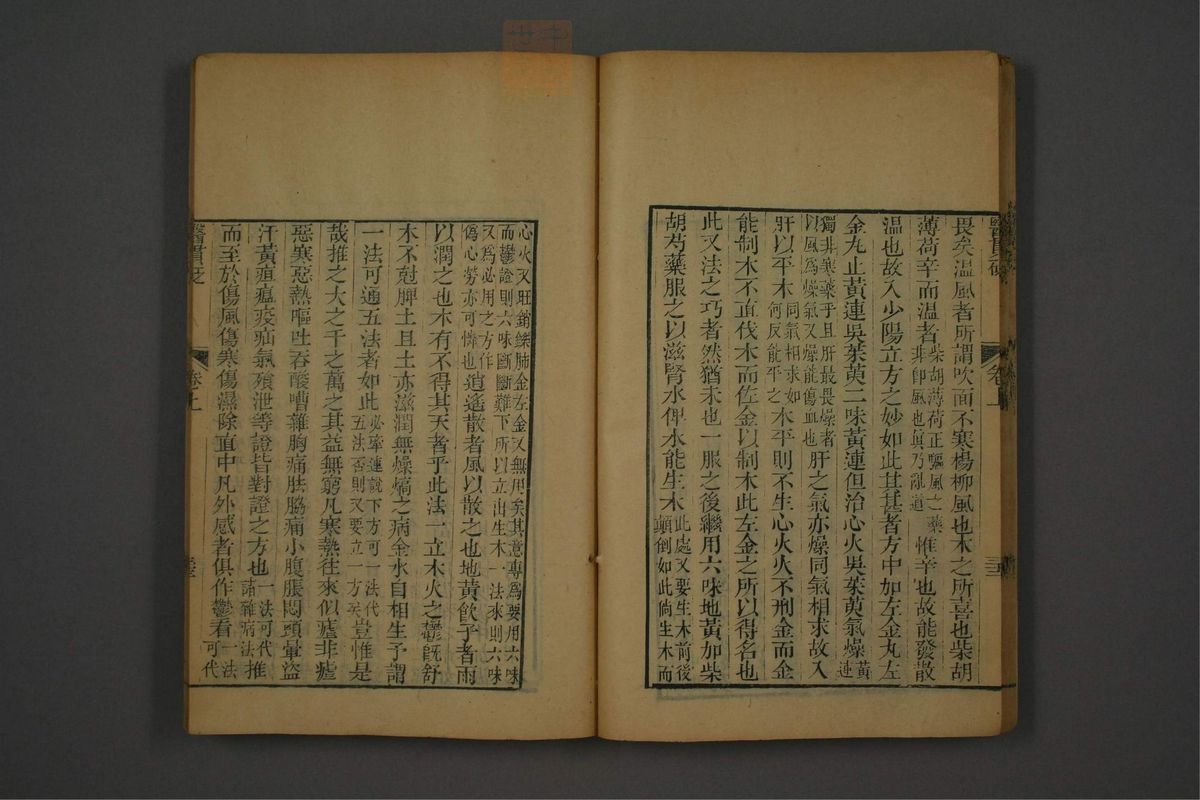 畏矣溫風者所謂吹面不寒楊柳風也木之所喜也柴胡
薄荷辛而溫者柴胡薄荷正驅風之藥非卽風也眞乃亂道惟辛也故能發散
溫也故入少陽立方之妙如此其甚者方中加左金丸左
金丸止黃連吳茱萸二味黃連但治心火吳茱萸氣燥黃連
獨非寒藥乎且肝最畏燥者以風爲燥氣又燥能傷血也肝之氣亦燥同氣相求故入
肝以平木同氣相求如何反能平之木平則不生心火火不刑金而金
能制木不直伐木而佐金以制木此左金之所以得名也
此又法之巧者然猶未也一服之後繼用六味地黃加柴
胡芍藥服之以滋腎水俾水能生木此處又要生木前後顛倒如此倘生木而
醫貫砭
卷上
心火又旺銷鑠肺金左金又無用矣其意專爲要用六味
而鬱證則六味斷斷難下所以立出生木一法來則六味
又爲必用之方作僞心勞亦可憐也逍遙散者風以散之也地黃飲子者雨
以潤之也木有不得其天者乎此法一立木火之鬱旣舒
木不剋脾土且土亦滋潤無燥熇之病金水自相生予謂
一法可通五法者如此必牽連說下方可一法代五法否則又要立一方矣豈惟是
哉推之大之千之萬之其益無窮凡寒熱往來似瘧非瘧
惡寒惡熱嘔吐吞酸嘈雜胸痛胠脇痛小腹脹悶頭暈盜
汗黃疸瘟疫疝氣飧泄等證皆對證之方也一法可代諸雜病法推
而至於傷風傷寒傷濕除直中凡外感者俱作鬱看一法可代
醫貫砭
卷上